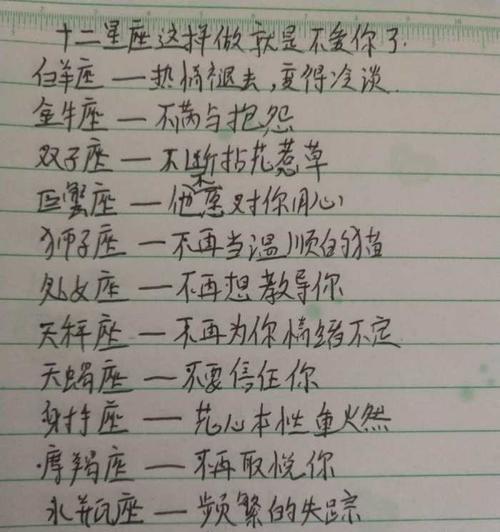 十二星座这样做就是不爱你了.
白羊座 — 热情褪去,变得冷淡.
金牛座 — 不满与抱怨
双子座 — 不断拈花惹草
巨蟹座 — 他不愿对你用心
狮子座 — 不再当温顺的猫
处女座 — 不再想教导你
天秤座 — 不再为你情绪不定
天蝎座 — 不要信任你
射手座 — 花心本性重火然
摩羯座 — 不再取悦你
水瓶座 — 频繁的失踪